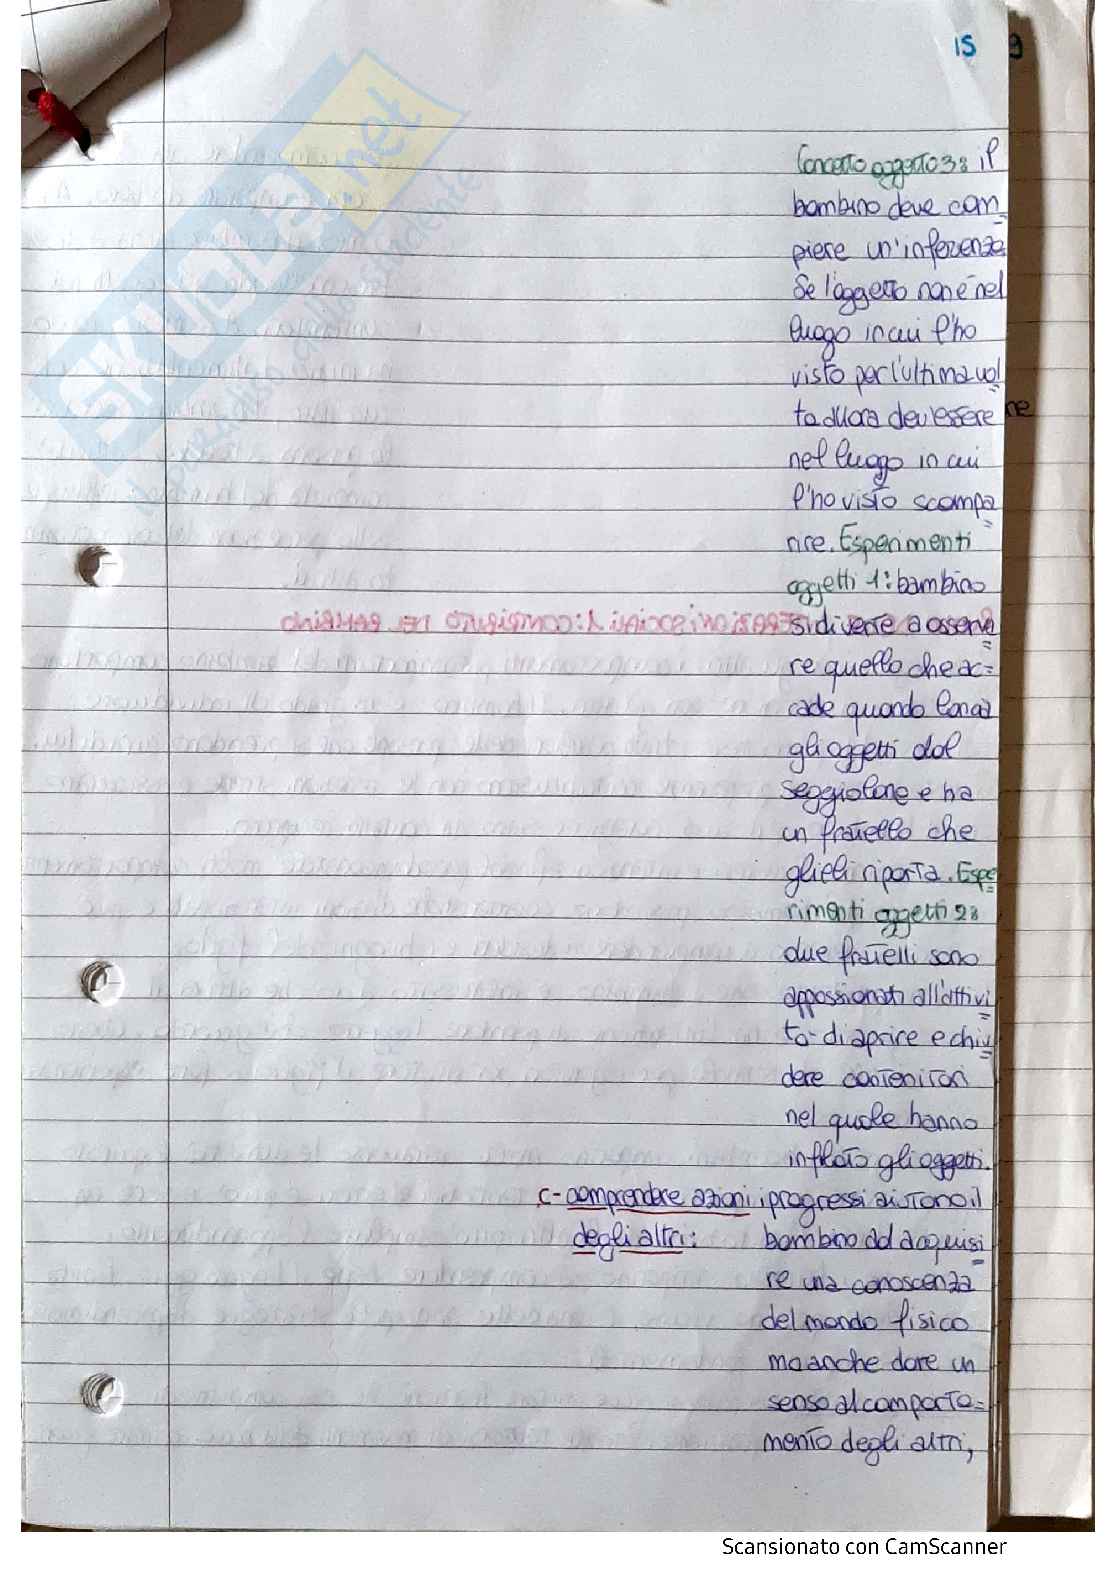 15 9
Concetto oggetto 3: il
bambino deve com
piere un'inferenza
Se l'oggetto non è nel
luogo in cui l'ho
visto per l'ultima vol
ta allora dev'essere
ne
nel luogo in cui
l'ho visto scompa
rire. Esperimenti
oggetti 1: bambino
si diverte a osserva
re quello che ac=
cade quando lancia
gli oggetti dal
seggiolone e ha
un fratello che
glieli riporta. Espe
rimenti oggetti 2:
due fratelli sono
appassionati all'attivi
tà di aprire e chiu
dere contenitori
nel quale hanno
infilato gli oggetti.
c- comprendere azioni i progressi aiutano il
degli altri: bambino ad acquisi
re una conoscenza
del mondo fisico
ma anche dare un
senso al comporta=
mento degli altri,
SKUOLA.net
il paradiso dello studente
Scansionato con CamScanner